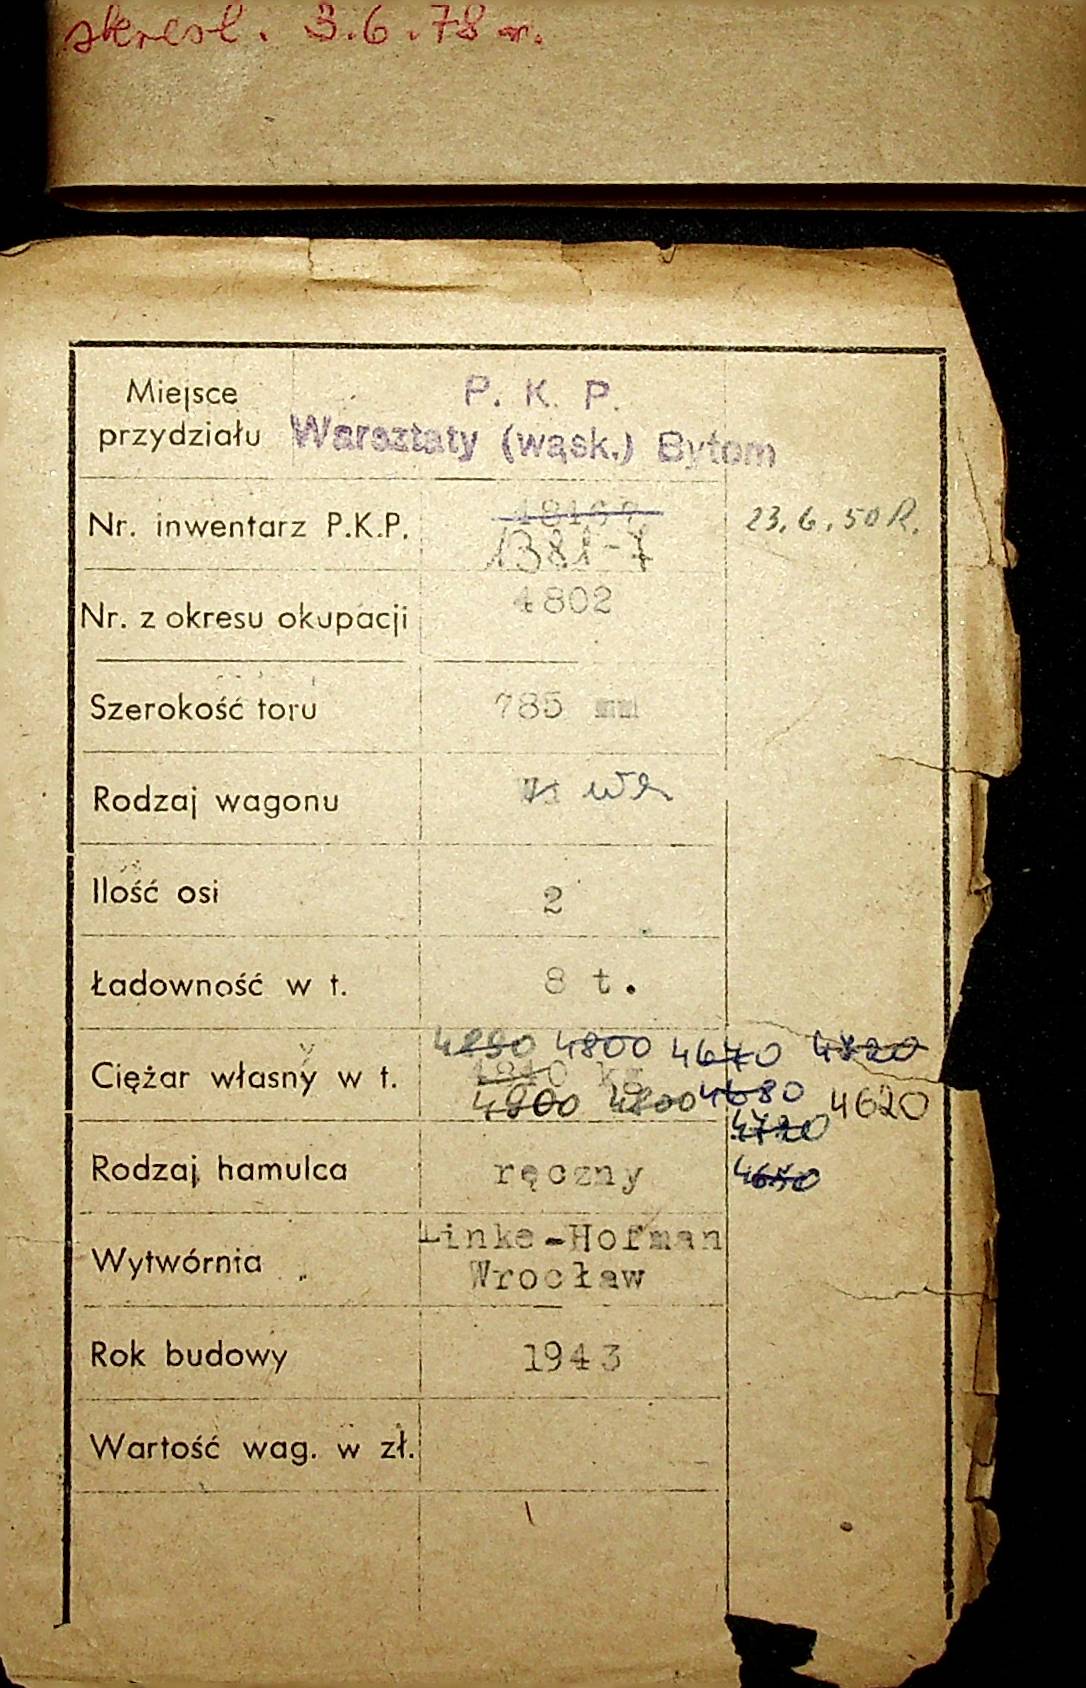 skreśl. 3.6.78 r.
Miejsce przydziału
P. K. P.
Warsztaty (wąsk.) Bytom
Nr. inwentarz P.K.P.
1381-7
23.6.50 R.
Nr. z okresu okupacji 4802
Szerokość toru 785 mm
Rodzaj wagonu
Ilość osi 2
Ładowność w t. 8 t.
4800 4670
Ciężar własny w t. kg
4900 4800 4680 4620
4720
4650
Rodzaj hamulca ręczny
Wytwórnia Linke-Hofman
Wrocław
Rok budowy 1943
Wartość wag. w zł.